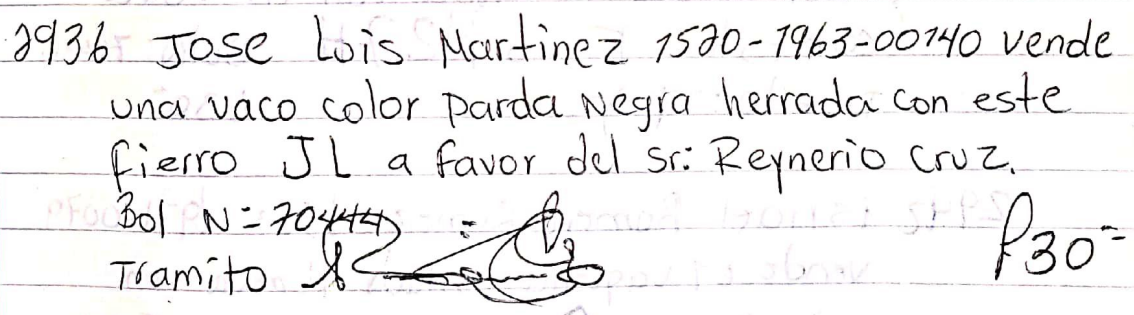 2936 Jose Lois Martinez 1520-1963-00140 vende
una vaco color parda Negra herrada con este
fierro JL a favor del sr: Reynerio Cruz.
Bol N=70444
Tramito
P30=